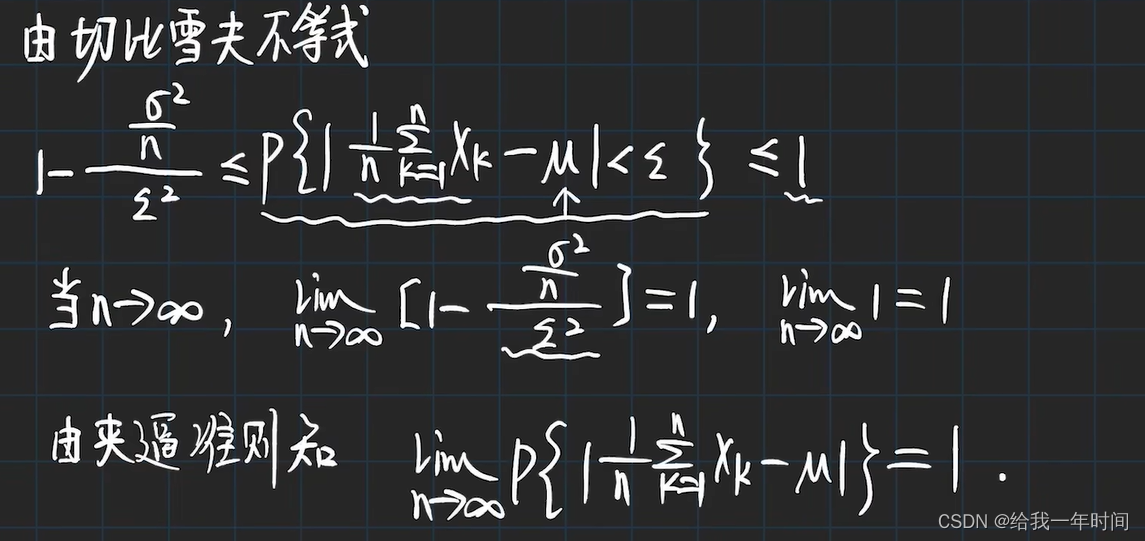 由切比雪夫不等式
1 - \frac{\frac{σ^2}{n}}{ε^2} ≤ P{|\frac{1}{n}\sum_{k=1}^{n} X_k - μ| < ε} ≤ 1
当n→∞, \lim_{n→∞} [1 - \frac{\frac{σ^2}{n}}{ε^2}] = 1, \lim_{n→∞} 1 = 1
由夹逼准则知 \lim_{n→∞} P{|\frac{1}{n}\sum_{k=1}^{n} X_k - μ|} = 1 .
CSDN @给我一年时间